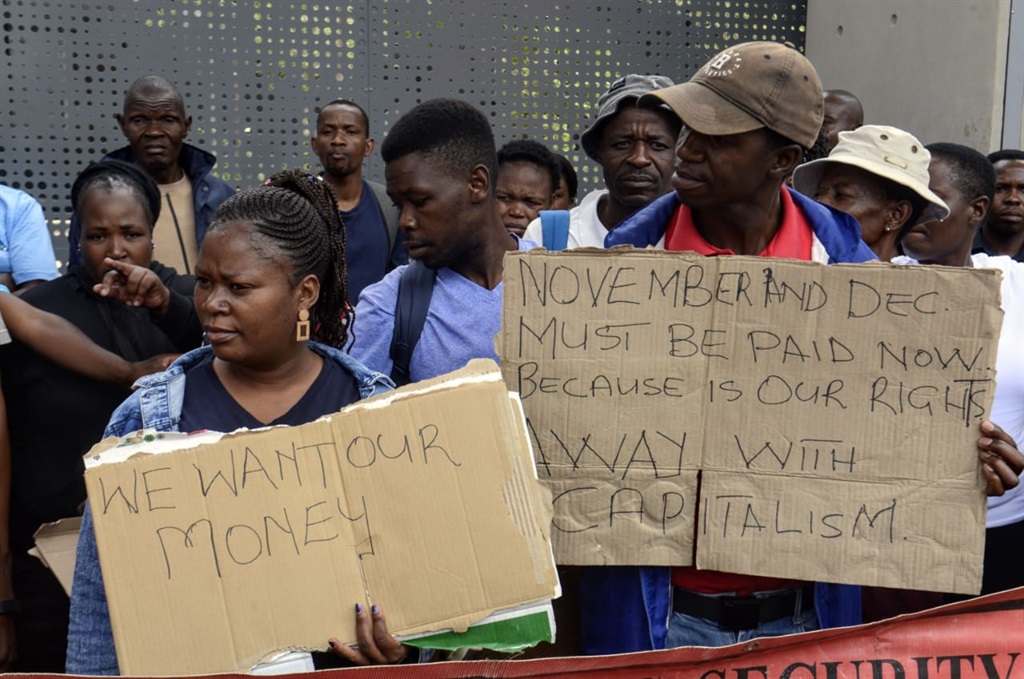 WE WANT OUR
MONEY
NOVEMBER AND DEC.
MUST BE PAID NOW..
BECAUSE IS OUR RIGHTS
AWAY WITH
CAPITALISM.
SECURITY